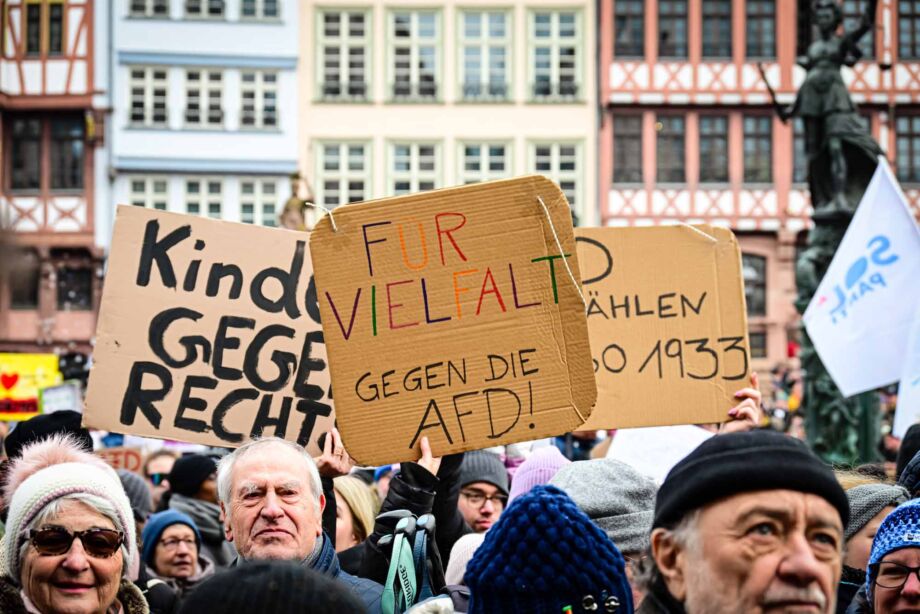 Kinde
GEGEN
RECHTS
FÜR
VIELFALT
GEGEN DIE
AFD!
D
ÄHLEN
SO 1933
SOL
PARTI